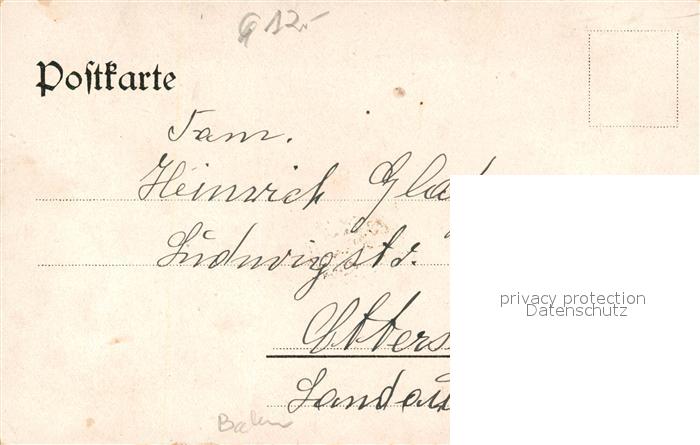 G 12.-
Postkarte
Fam.
Heinrich
Ludwigstr.
Landau
privacy protection
Datenschutz